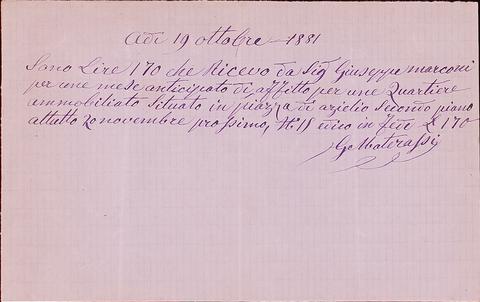 Adi 19 ottobre 1881
Sono Lire 170 che Ricevo da Sig Giuseppe marconi
per une mese anticipato di affitto per une Quartiere
ammobiliato Situato in piazza di azielio Secondo piano
a tutto 20 novembre prossimo, N. 18 dico in fede £ 170
G. Materassi